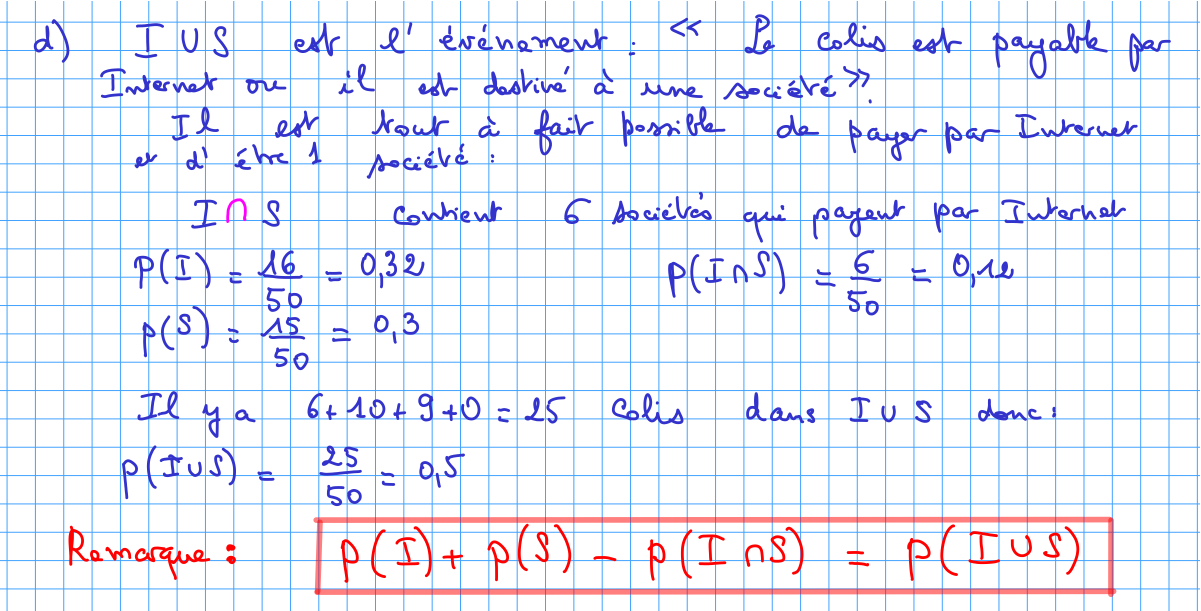 d) I ∪ S est l'événement : « Le colis est payable par
Internet ou il est destiné à une société ».
Il est tout à fait possible de payer par Internet
et d'être 1 société :
I ∩ S contient 6 sociétés qui payent par Internet
p(I) = 16/50 = 0,32 p(I ∩ S) = 6/50 = 0,12
p(S) = 15/50 = 0,3
Il y a 6 + 10 + 9 + 0 = 25 colis dans I ∪ S donc :
p(I ∪ S) = 25/50 = 0,5
Remarque : p(I) + p(S) - p(I ∩ S) = p(I ∪ S)